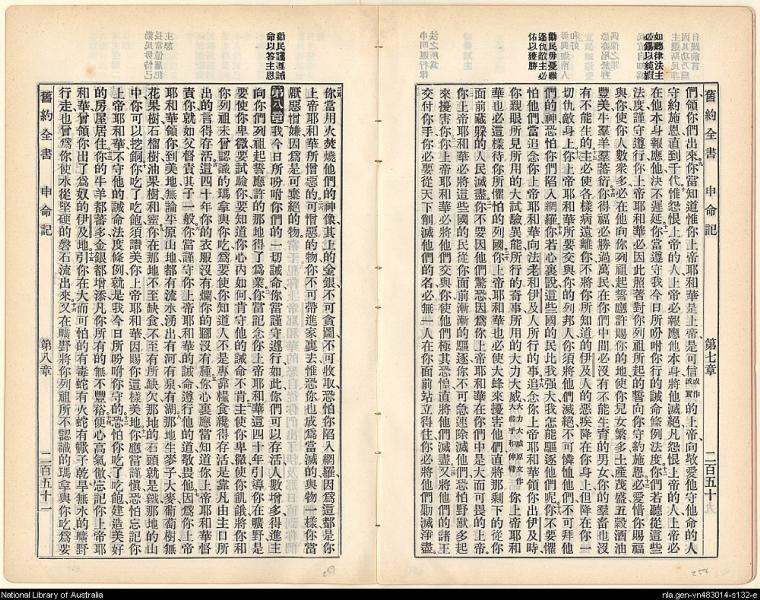 如聽律法主
必錫以純嘏
勸民毋憂纘
逐仇敵主必
佑以獲勝
舊約全書 申命記 第七章 二百五十
們領你們出來你當知道惟你上帝耶和華是上帝是可信的上帝向敬愛他守他命的人
守約施恩直到千代惟怨恨上帝的人上帝必報應他本身將他滅絕凡怨恨上帝的人上帝必
在他本身報應他決不遲延你當遵守我今日所吩咐你行的誡命條例法度你們若聽從這些
法度謹守遵行你上帝耶和華必因此照著對你列祖所起的誓向你守約施恩必愛惜你賜福
與你使你人數衆多必在他向你列祖起誓應許賜你的地使你兒女繁多土產茂盛五穀酒油
豐美牛羣羊羣蕃衍你得福必勝過萬民在你們中間必沒有不能生育的男女你的羣畜也沒
有不能生的主必使各樣病遠離你不將你所知道的伊及人的惡疾降在你身上但降在一
切仇敵身上你上帝耶和華所要交與你的列邦人你須將他們滅絕不可憐恤他們不可拜他
們的神恐怕你們陷入網羅你若心裏說這些國的民比我強大我怎能驅逐他們呢你不要懼
怕他們當追念你上帝耶和華向法老和伊及人所行的事追念你上帝耶和華領你出伊及時
你親眼所見所用的大試驗異能所行的奇事所用的大力大威你上帝耶和
華也必這樣待你所懼怕的列國你上帝耶和華也必使大蜂來擾害他們直將那剩下的從你
面前藏躲的人民滅盡你不要因他們驚恐因爲你上帝耶和華在你們中是大而可畏的上帝
你上帝耶和華必將這些國的民從你面前漸漸的驅逐你不可急速除滅他們恐怕野獸多起
來擾害你你上帝耶和華必將他們交與你使他們極其恐惶直將他們滅盡又將他們的諸王
交付你手你必要從天下剿滅他們的名必無一人在你面前站立得住你必將他們勦滅淨盡
勸民謹遵誡
命以答主恩
你當用火焚燒他們的神像其上的金銀不可貪圖不可收取恐怕你陷入網羅因爲這都是你
上帝耶和華所憎惡的可憎惡的物你不可帶進家裏去惟恐你也成爲當滅的與物一樣你當
厭惡憎嫌因爲是可棄絕的物
第八章我今日所吩咐你們的一切誡命你當謹守遵行如此你們可以存活人數增多得進主
向你們列祖起誓應許的那地得了爲業你當記念你上帝耶和華這四十年引導你在曠野是
要使你卑微要試驗你要知道你心內如何肯守他的誡命不肯主使你卑微使你飢餓將你和
你列祖未曾認識的瑪拿與你吃爲要使你知道人不是專靠糧食纔得存活是靠凡由主口所
出的言得存活這四十年你的衣服沒有爛你的腳沒有種你心裏應當知道你上帝耶和華督
責你就如父督責其子一般你當謹守你上帝耶和華的誡命遵行他的道敬畏他因爲你上帝
耶和華領你到美地無論平原山地都有流水湧出有河有泉有湖那地生麥子大麥葡萄樹無
花果樹石榴樹油果樹和蜜你在那地不至缺食不至有所缺欠那地的石頭就是鐵那地的山
中你可以挖銅你吃了吃飽須讚美你上帝耶和華因賜你這樣美地你應當謹愼恐怕忘記你
上帝耶和華不守他的誡命法度條例就是我今日所吩咐你守的恐怕你吃了吃飽建造美好
的房屋居住你的牛羊都蕃多金銀都增添凡你所有的無不豐裕便心高氣傲忘記你上帝耶
和華曾領你出了爲奴的伊及地引你在大而可怕的有毒蛇有火蛇有蠍子乾旱無水的曠野
行走也曾爲你使水從堅硬的磐石流出來又在曠野將你列祖所不認識的瑪拿與你吃爲要
舊約全書 申命記 第八章 二百五十一
National Library of Australia
nla.gen-vn483014-s132-e